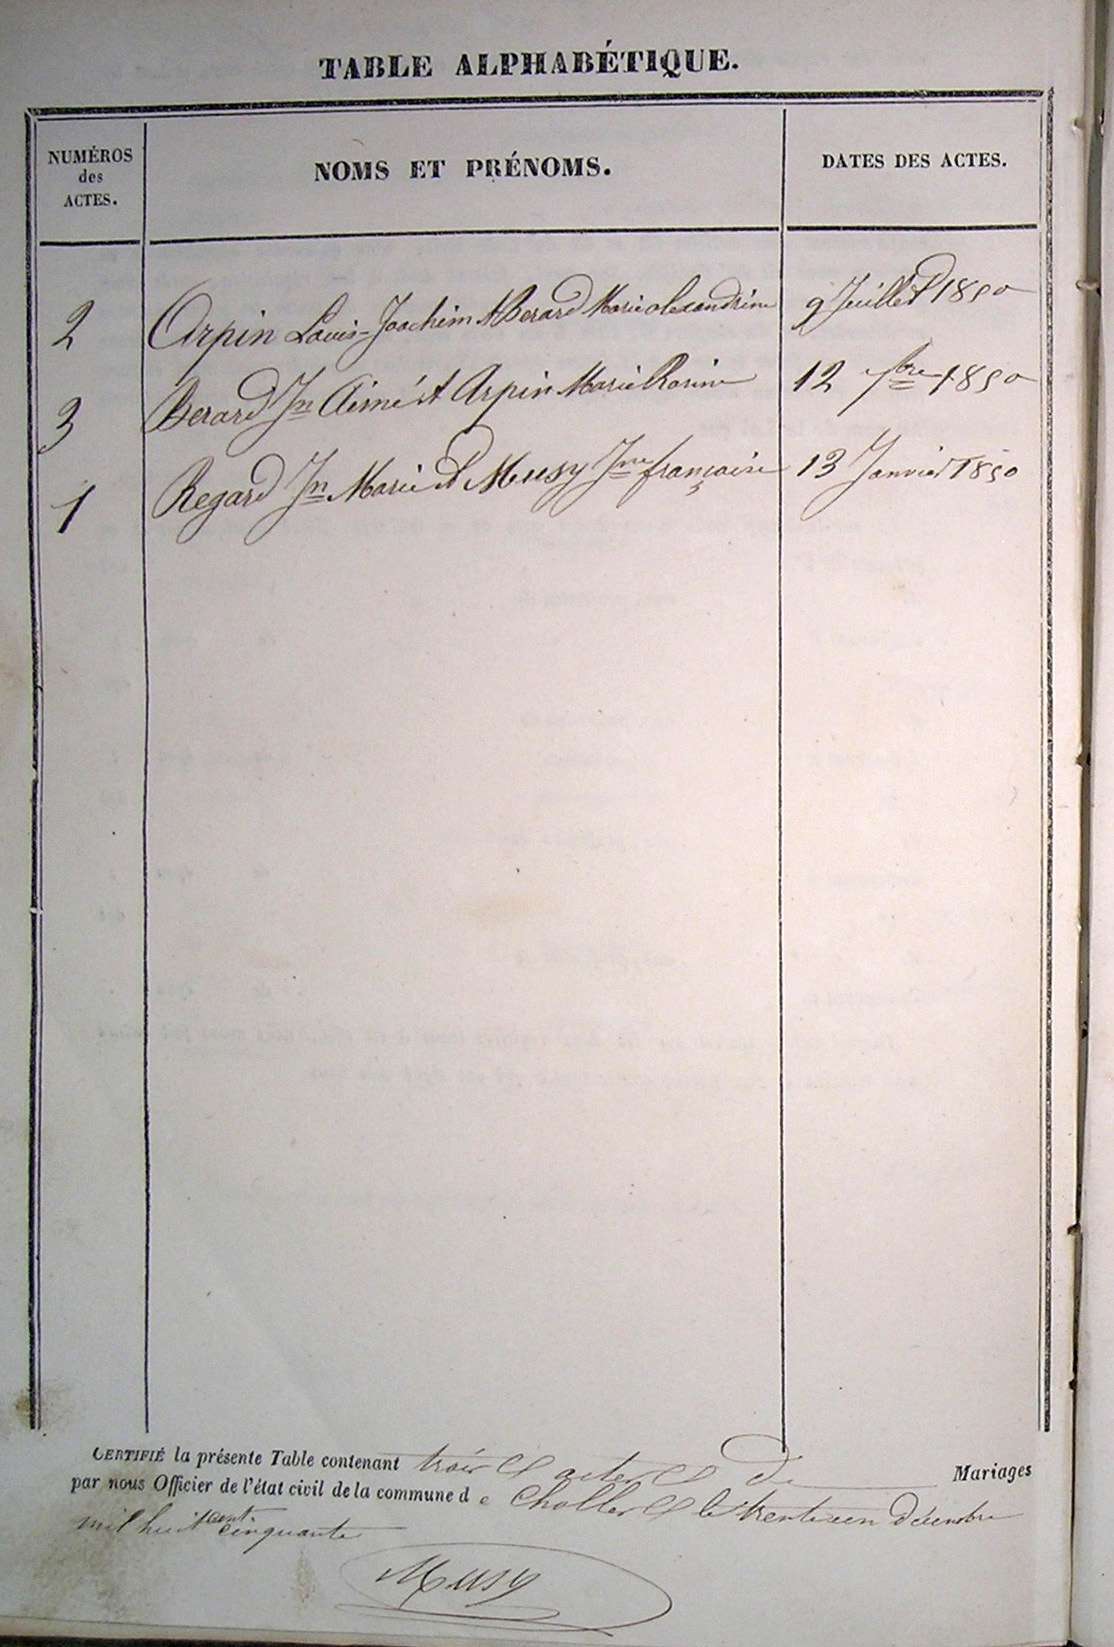 TABLE ALPHABÉTIQUE.
NUMÉROS des ACTES.
NOMS ET PRÉNOMS.
DATES DES ACTES.
2 Arpin Louis-Joachim & Berard Marie alexandrine 9 Juillet 1850
3 Berard Jn Aimé et Arpin Marie Rosine 12 bre 1850
1 Regard Jn Marie et Musy Jne françoise 13 Janvier 1850
CERTIFIÉ la présente Table contenant trois actes de Mariages
par nous Officier de l'état civil de la commune d e le trente un décembre
mil huit cent cinquante
Musy